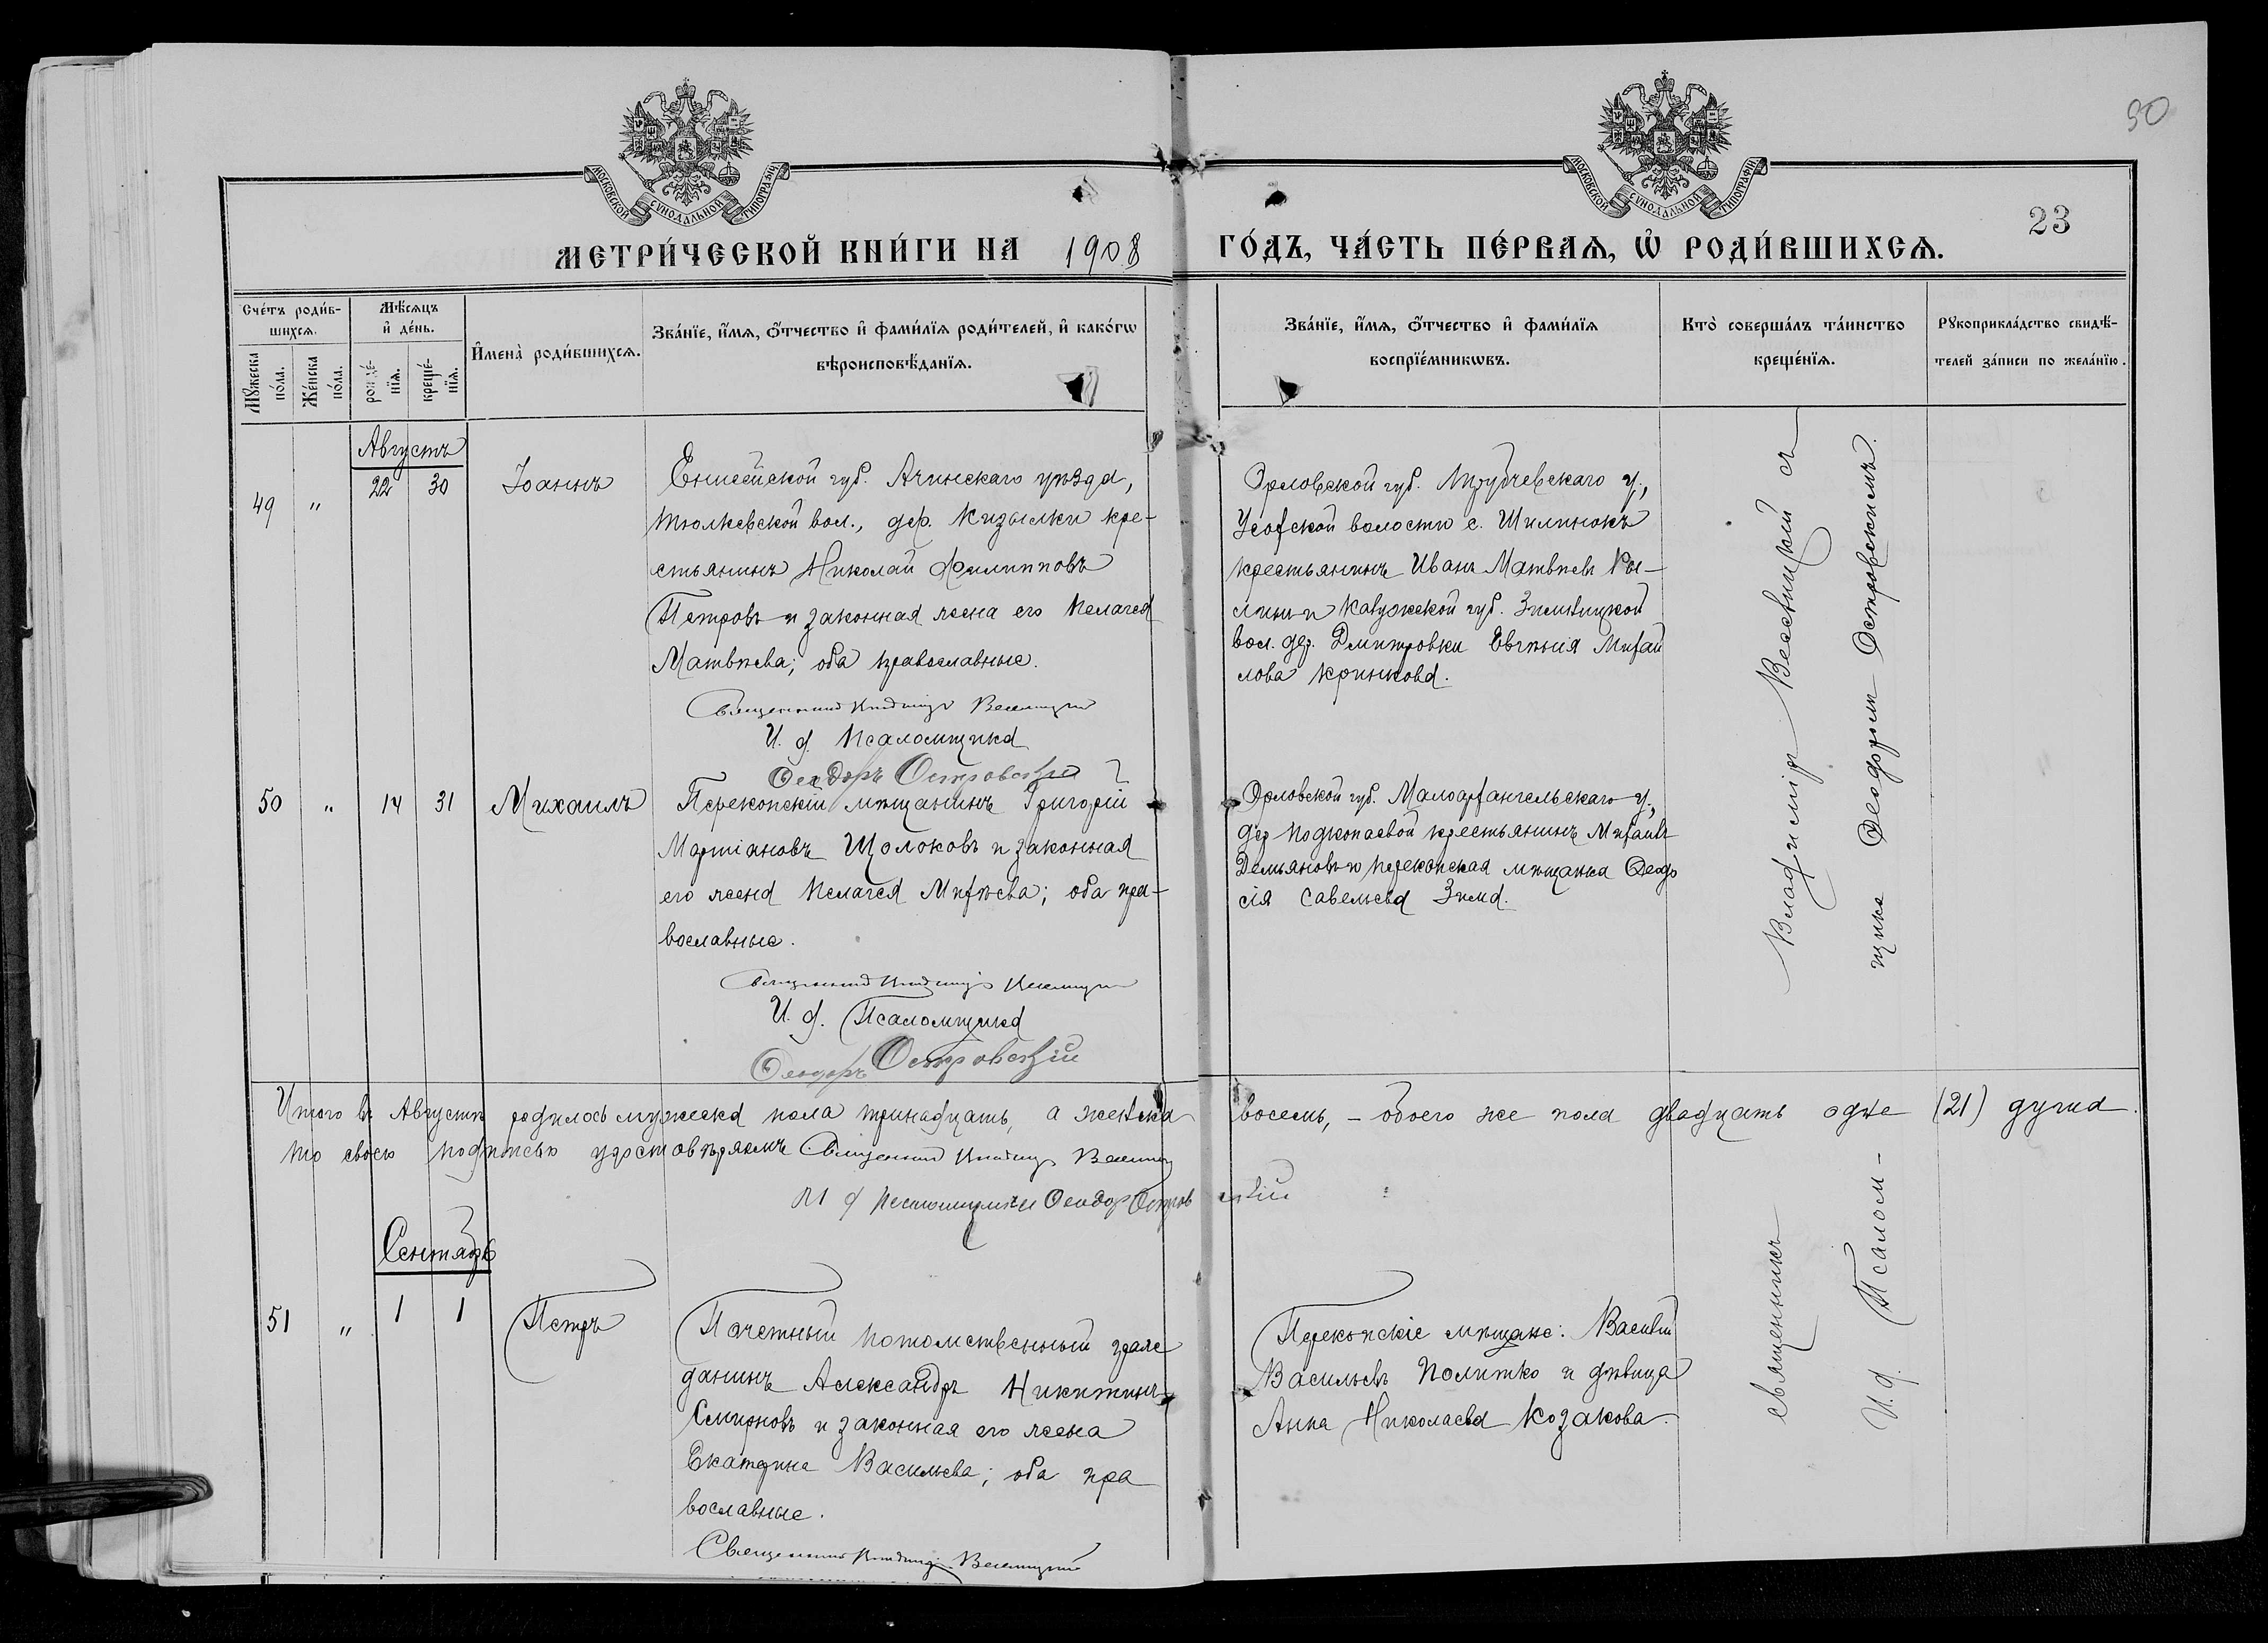 МОСКОВСКОЙ СѴНОДАЛЬНОЙ ТИПОГРАФІИ
МОСКОВСКОЙ СѴНОДАЛЬНОЙ ТИПОГРАФІИ
50
23
МЕТРИ́ЧЕСКОЙ КНИ́ГИ НА 1908 ГО́ДЪ, ЧА́СТЬ ПЕ́РВАѦ, Ѡ҆ РОДИ́ВШИХСѦ.
Сче́тъ роди́в-
шихсѧ.
Мѣ́сѧцъ
и҆ де́нь.
Мꙋ́жеска
по́ла.
Же́нска
по́ла.
рожде́-
нїѧ.
креще́-
нїѧ.
И҆мена̀ роди́вшихсѧ.
Зва́нїе, и҆́мѧ, ѻ҆́тчество и҆ фами́лїѧ роди́телей, и҆ како́гѡ
вѣроисповѣ́данїѧ.
Зва́нїе, и҆́мѧ, ѻ҆́тчество и҆ фами́лїѧ
воспрїе́мникѡвъ.
Кто̀ соверша́лъ та́инство
креще́нїѧ.
Рꙋкоприкла́дство свидѣ́-
телей за́писи по жела́нїю.
Августъ
49 " 22 30 Іоаннъ
Енисейской губ. Ачинскаго уѣзда,
Тюлькевской вол., дер. Кизылки кре-
стьянинъ Николай Филипповъ
Петровъ и законная жена его Пелагея
Матвѣева; оба православные.
Священникъ Владиміръ Веселицкій
И. д. Псаломщика
Ѳеодоръ Островскій
Орловской губ. Трубчевскаго у.,
Усохской волости с.
крестьянинъ Иванъ Матвѣевъ
и Калужской губ.
вол. дер. Дмитровки Евгенія Михай
лова
50 " 14 31 Михаилъ
Перекопскій мѣщанинъ Григорій
Мартіановъ Щолоковъ и законная
его жена Пелагея Михѣева; оба пра-
вославные.
Священникъ Владиміръ Веселицкій
И. д. Псаломщика
Ѳеодоръ Островскій
Орловской губ. Малоархангельскаго у.,
дер Подкопаевой крестьянинъ Михаилъ
Демьяновъ и Перекопская мѣщанка Ѳеодо
сія Савельева Зима.
Итого въ Августѣ родилось мужеска пола тринадцать, а женска восемь, – обоего же пола двадцать одне (21) душа.
То своею подписью удостовѣряемъ Священникъ Владиміръ Веселицкій
И д Псаломщика Ѳеодоръ Островскій
Сентябрь
51 " 1 1 Петръ
Почетный потомственный граж
данинъ Александръ Никитинъ
Смирновъ и законная его жена
Екатерина Васильева; оба пра
вославные.
Священникъ Владиміръ Веселицкій
Перекопскіе мѣщане: Василій
Васильевъ Политко и дѣвица
Анна Николаева Козакова.
священникъ Владиміръ Веселицкій съ
И. д. Псалом-щика Ѳеодоромъ Островскимъ.